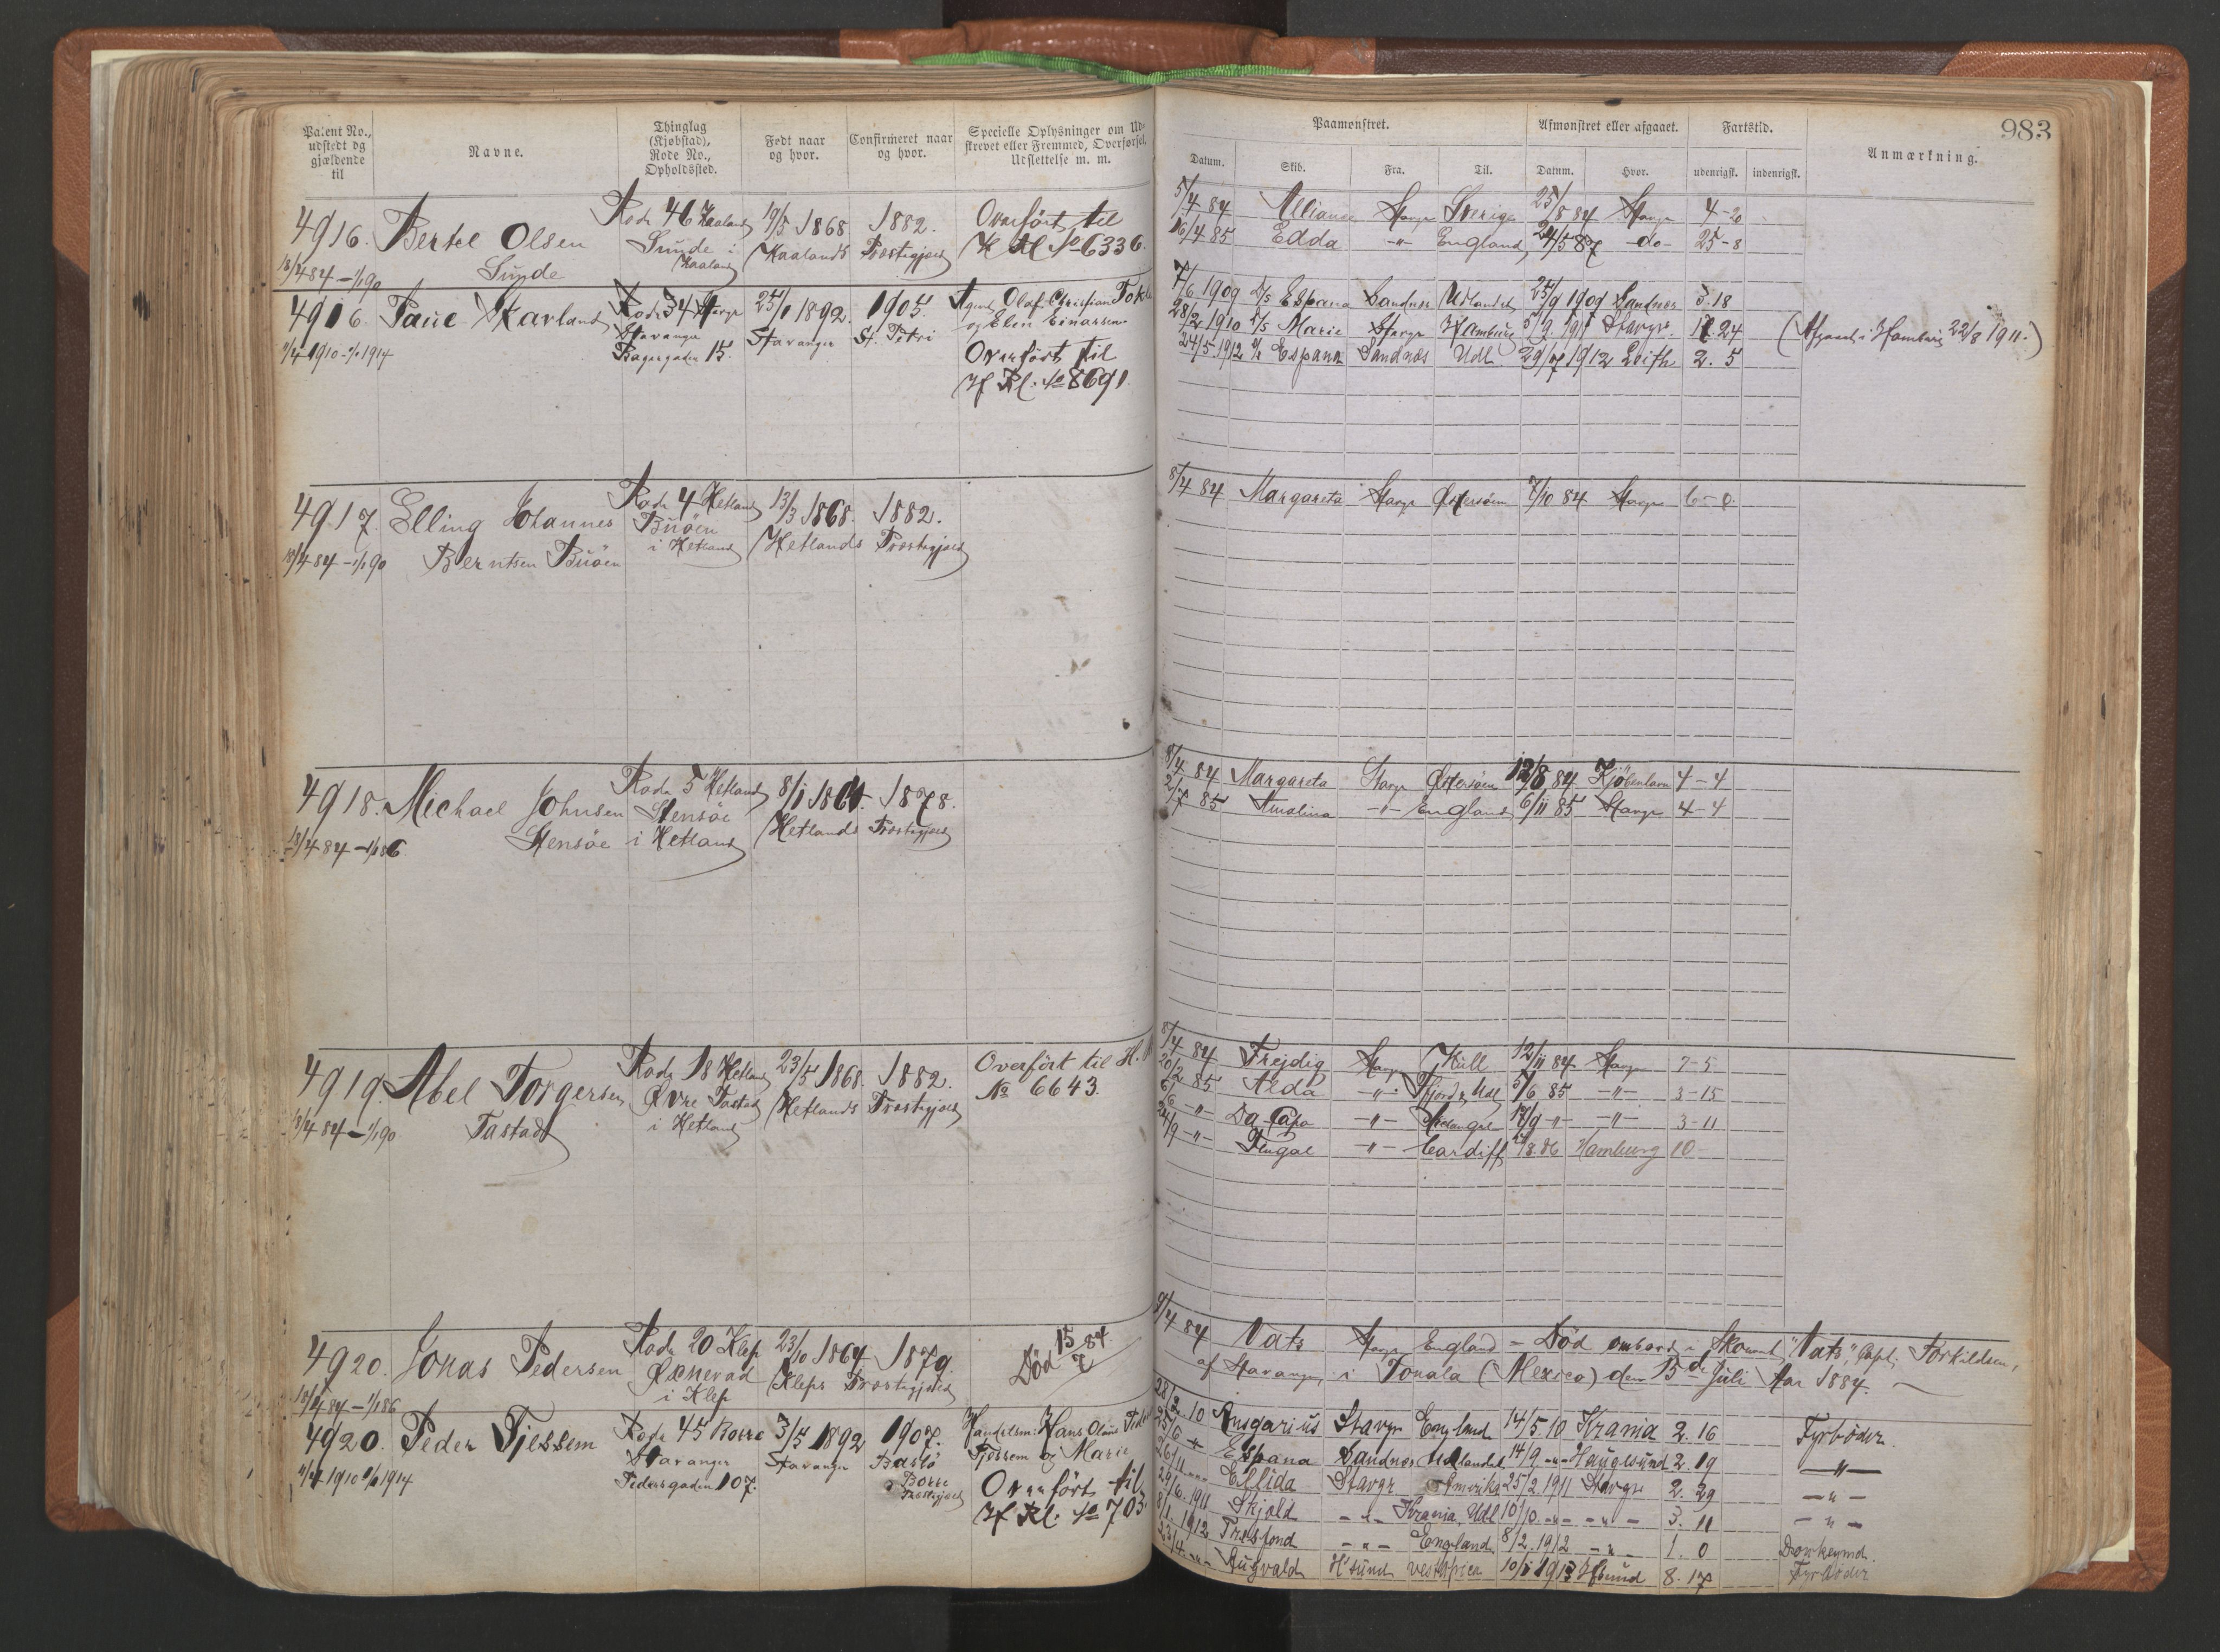 983
Patent No., udstedt og gjældende til
Navne.
Thinglag (Kjøbstad), Rode No., Opholdssted.
Født naar og hvor.
Confirmeret naar og hvor.
Specielle Oplysninger om Ud- strevet eller Fremmed, Overførsel, Udslettelse m. m.
Paamønstret.
Afmønstret eller afgaaet.
Fartstid.
Anmærkning.
Datum. Skib. Fra. Til. Datum. Hvor. udenrigsk. indenrigsk.
4916. Bertel Olsen Rode 46 Haaland 19/5 1868. 1882. Overført til
Sunde Sunde i Haaland Haalands Præstegjæld H Rl. No 6336.
18/4 84 - 1/1 90
5/4 84 Alliance Stavgr Sverige 25/8 84 Stavgr 4-20
16/4 85 Edda -"- England 24/5 87 -do- 25-8
4916. Skavland Rode 34 Stavgr 25/1 1892. 1905. Agent Olaf Christian
Stavanger Stavanger St. Petri og Elen Einarsen
1/4 1910 - 1/1 1914 15. Overført til
H Rl. No 8691.
7/6 1909 D/S Espana Sandnes Udlandet 25/9 1909 Sandnes 3.18
28/2 1910 D/S Marie Stavgr Hamburg Stavgr. 17.24 (Afgaaet i Hamburg 22/8 1911.)
24/5 1912 Espana Sandnæs Udl. 29/7 1912 Leith 2. 5
4917. Elling Johannes Rode 4 Hetland 13/3 1868. 1882.
Berntsen Buöen Buöen i Hetland Hetlands Præstegjæld
18/4 84 - 1/1 90
8/4 84 Margareta Stavgr Østersøen 7/10 84 Stavgr 6-0
4918. Michael Johnsen Rode 5 Hetland 8/1 1864. 1878.
Stensöe Stensöe i Hetland Hetlands Præstegjæld
18/4 84 - 1/1 86
8/4 84 Margareta Stavgr Østersøen 12/8 84 Kjöbenhavn 4-4
2/7 85 Amalina -"- England 6/11 85 Stavgr 4-4
4919. Abel Torgersen Rode 18 Hetland 23/5 1868. 1882. Overført til H.
Tastad Øvre Tastad i Hetland Hetlands Præstegjæld No 6643.
18/4 84 - 1/1 90
8/4 84 Frejdig Stavgr Hull 12/11 84 Stavgr 7-5
20/2 85 Alda -"- 5/6 85 -"- 3-15
6/6 -"- Da Capo -"- Archangel 17/9 -"- -"- 3-11
24/9 -"- Fingal -"- Cardiff 86 Hamburg 10-
4920. Jonas Pedersen Rode 20 Klep 23/10 1864 1879. Død 15/7 84
Øxnevad i Klep Kleps Præstegjæld
18/4 84 - 1/1 86
9/4 84 Vats Stavgr England - Død ombord i Skonnert "Vats", Capt. Torkildsen,
af Stavanger, i Tonala (Mexico) den 15de Juli Aar 1884.
4920. Peder Tjessem Rode 45 Borre 3/5 1892 1907. Handelsm: Hans Olaus
Stavanger Stavanger Bastö Tjessem og Marie
1910 1914 Pedersgaden 107. Borre Præstegjæld Overført til
H Rl. No 703
28/2 10 Ansgarius Stavgr England 14/5 10 Krania 2.16 Fyrböder.
25/6 Espana Sandnes Udlandet 14/9 -"- Haugesund 2.19 -"-
26/11 -"- Ellida Stavgr Amerika 25/2 1911 Stavgr 2. 29 -"-
29/6 1911 Skjold -"- Krania, Udl 10/10 -"- -"- 3. 11 -"-
8/1 1912 Tresfond -"- England 8/2 1912 -"- 1. 0 Donkeymd.
23/4 -"- H'sund Vestafrica 10/1 1913 H'sund 8.17 Fyrböder